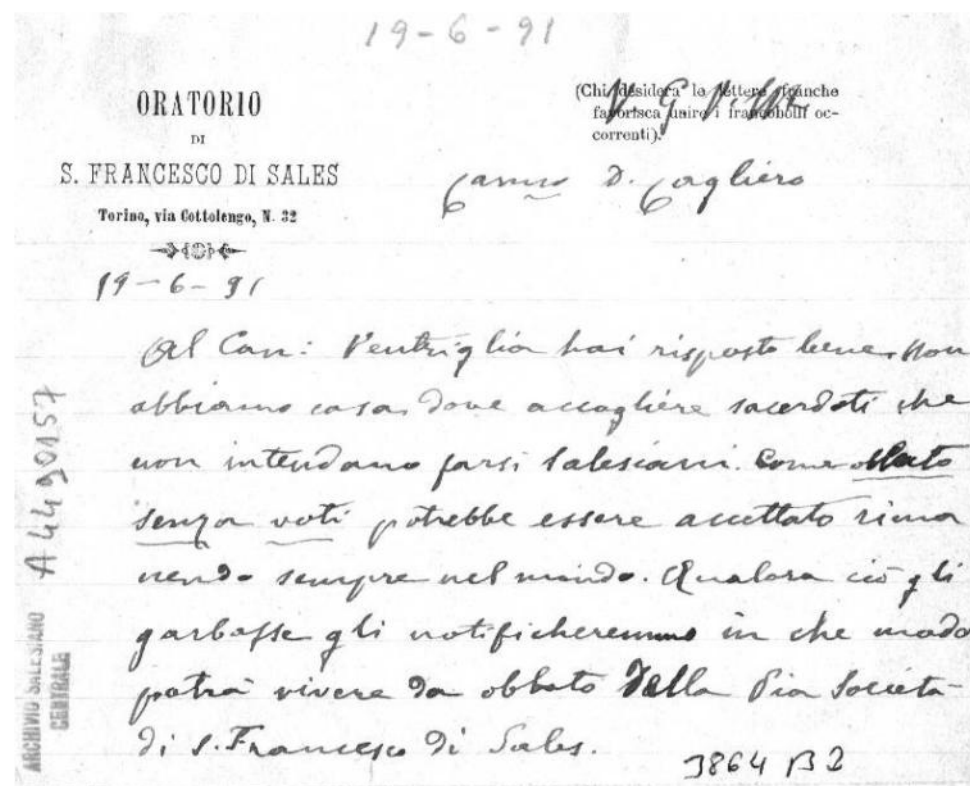 19-6-91
ORATORIO
DI
S. FRANCESCO DI SALES
Torino, via Cottolengo, N. 32
(Chi desidera le lettere franche
favorisca unire i francobolli oc-
correnti).
Carmo D. Cagliero
19-6-91
Al Can: Ventriglia hai risposto bene. Non
abbiamo casa dove accogliere sacerdoti che
non intendano farsi Salesiani. Come oblato
senza voti potrebbe essere accettato rima
nendo sempre nel mondo. Qualora ciò gli
garbasse gli notificheremmo in che modo
potrà vivere da obbato della Pia Società
di S. Francesco di Sales.
3864 B2
A4490157
ARCHIVIO SALESIANO
CENTRALE